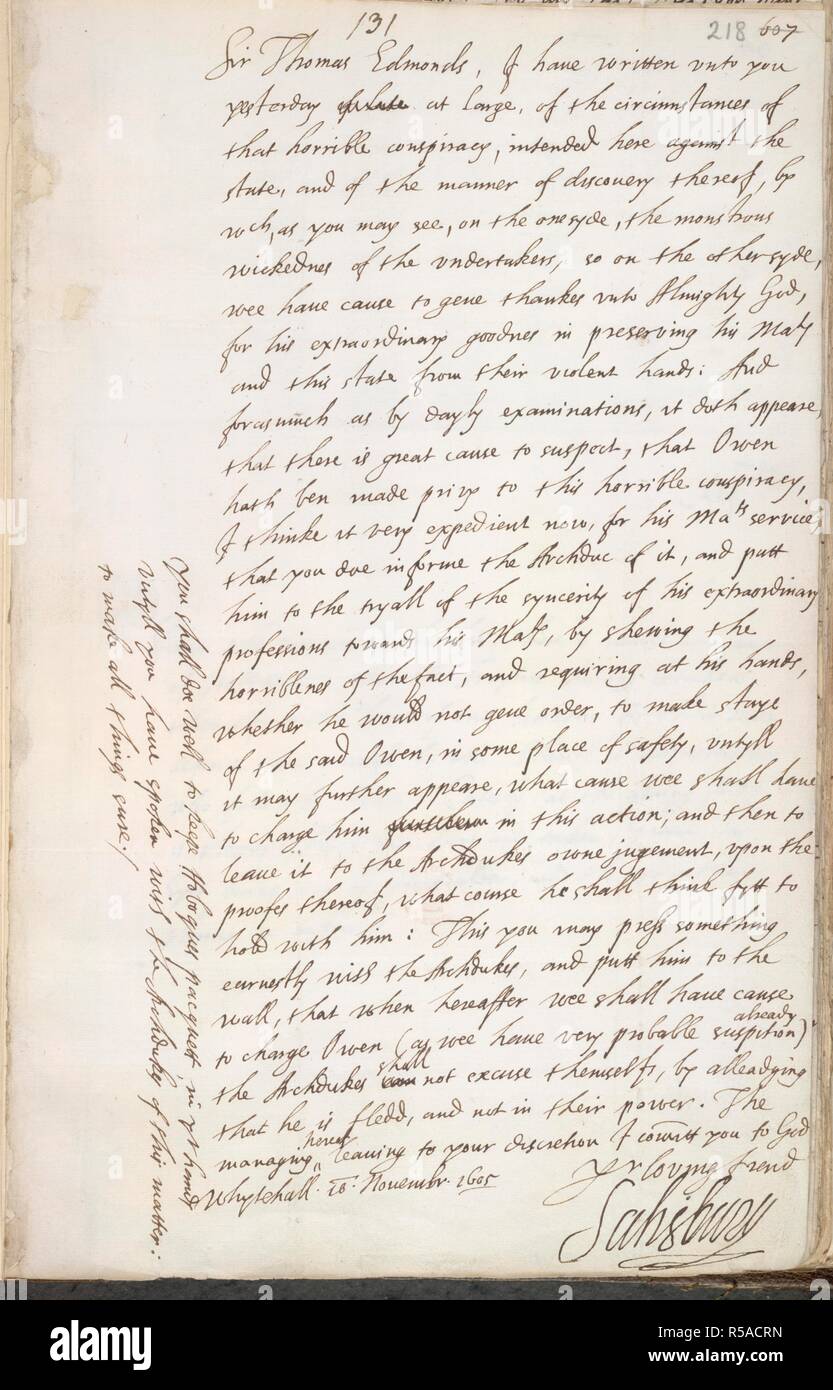 131
218 607
Sir Thomas Edmonds, I have written vnto you
yesterday at large, of the circumstances of
that horrible conspiracy, intended here against the
state, and of the manner of discovery thereof, by
wch, as you may see, on the one syde, the monstrous
wickednes of the vndertakers, so on the other syde,
wee haue cause to geue thankes vnto Almighty God,
for his extraordinary goodnes in preserving his Maty
and this state from their violent hands: And
forasmuch as by dayly examinations, it doth appeare,
that there is great cause to suspect, that Owen
hath ben made privy to this horrible conspiracy,
I thinke it very expedient now, for his Mats service,
that you doe informe the Archduc of it, and putt
him to the tryall of the syncerity of his extraordinary
professions towards his Maty, by shewing the
horriblenes of the fact, and requiring at his hands,
whether he would not geue order, to make staye
of the said Owen, in some place of safety, vntyll
it may further appeare, what cause wee shall haue
to charge him in this action; and then to
leaue it to the Archdukes owne jugement, vpon the
proofes thereof, what course he shall think fytt to
hold with him: This you may press something
earnestly with the Archdukes, and putt him to the
wall, that when hereafter wee shall haue cause
already
to charge Owen (as wee haue very probable suspition)
shall
the Archdukes can not excuse themselfs, by alleadging
that he is fledd, and not in their power. The
hereof
managing leauing to your discretion I comitt you to God
Whytehall. 10. Novembr. 1605
Yr loving frend
Salisbury
You shall doe well to kepe Hoboques pacquett, in yr hands
vntyll you haue spoken with the Archdukes of this matter:
to make all things sure./
alamy
Image ID: R5ACRN
www.alamy.com